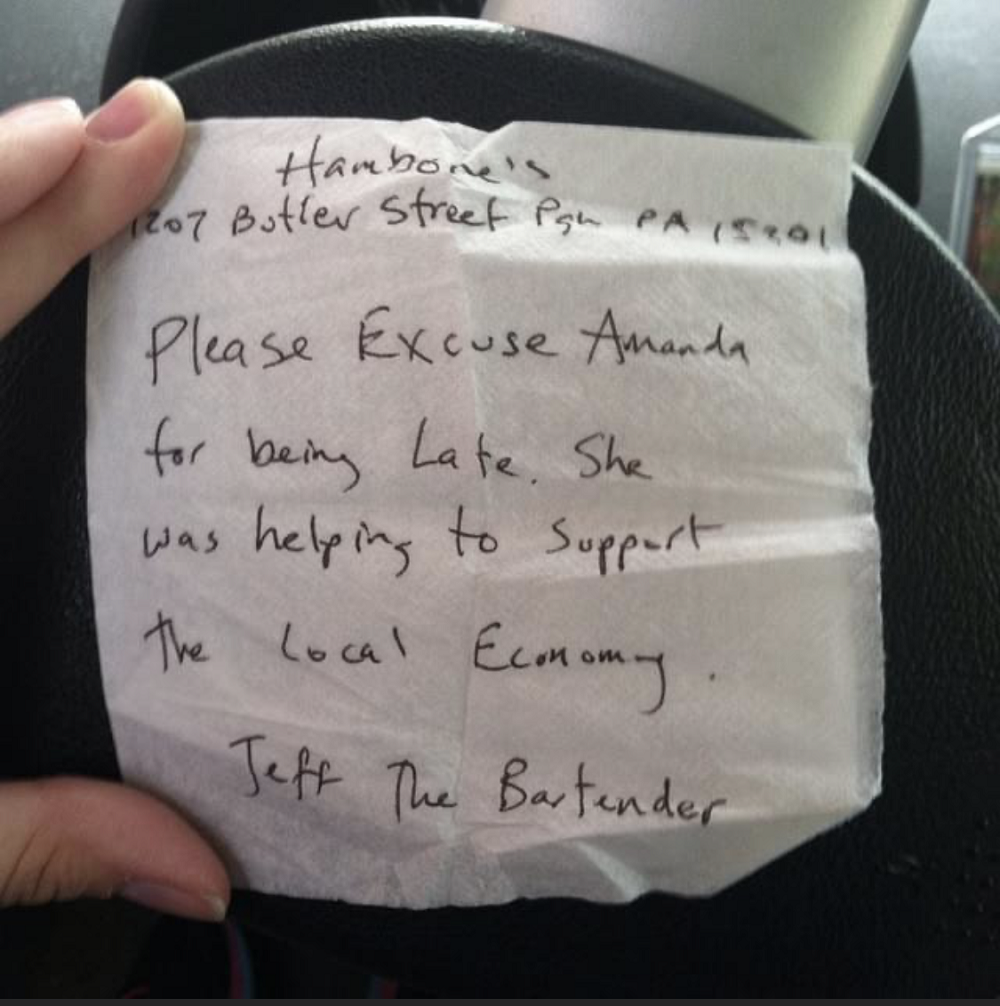 Hambone's
4207 Butler Street Pgh PA 15201
Please Excuse Amanda
for being Late. She
was helping to Support
The Local Economy.
Jeff The Bartender